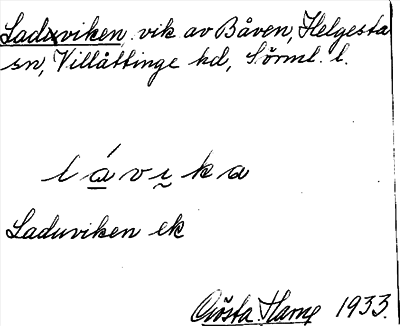 Laduviken, vik av Båven, Helgesta
sn, Villåttinge hd, Sörml. l.
lávika
Laduviken ek
Gösta 1933.